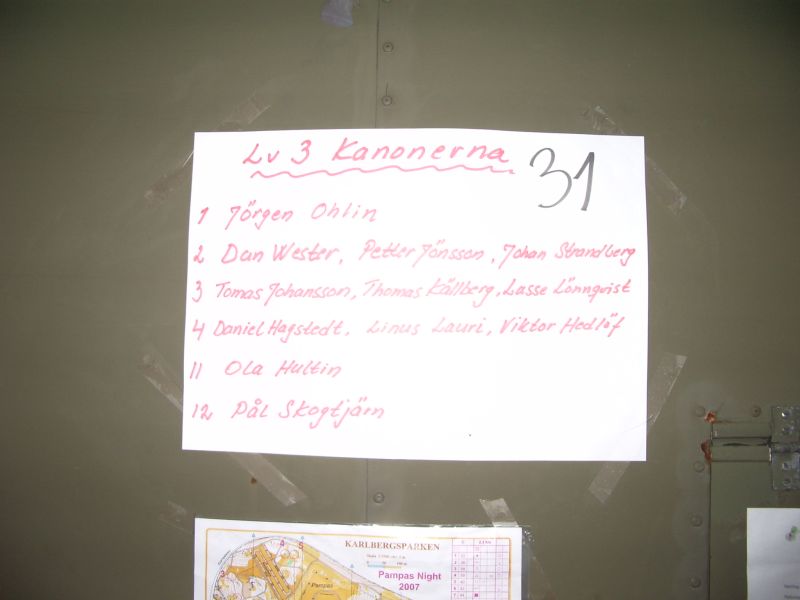 Lv 3 Kanonerna 31
1 Jörgen Ohlin
2 Dan Wester, Petter Jönsson, Johan Strandberg
3 Tomas Johansson, Thomas Källberg, Lasse Lönnqvist
4 Daniel Hagstedt, Linus Lauri, Viktor Hedlöf
11 Ola Hultin
12 Pål Skogtjärn
KARLBERGSPARKEN
Pampas Night
2007
Pampas